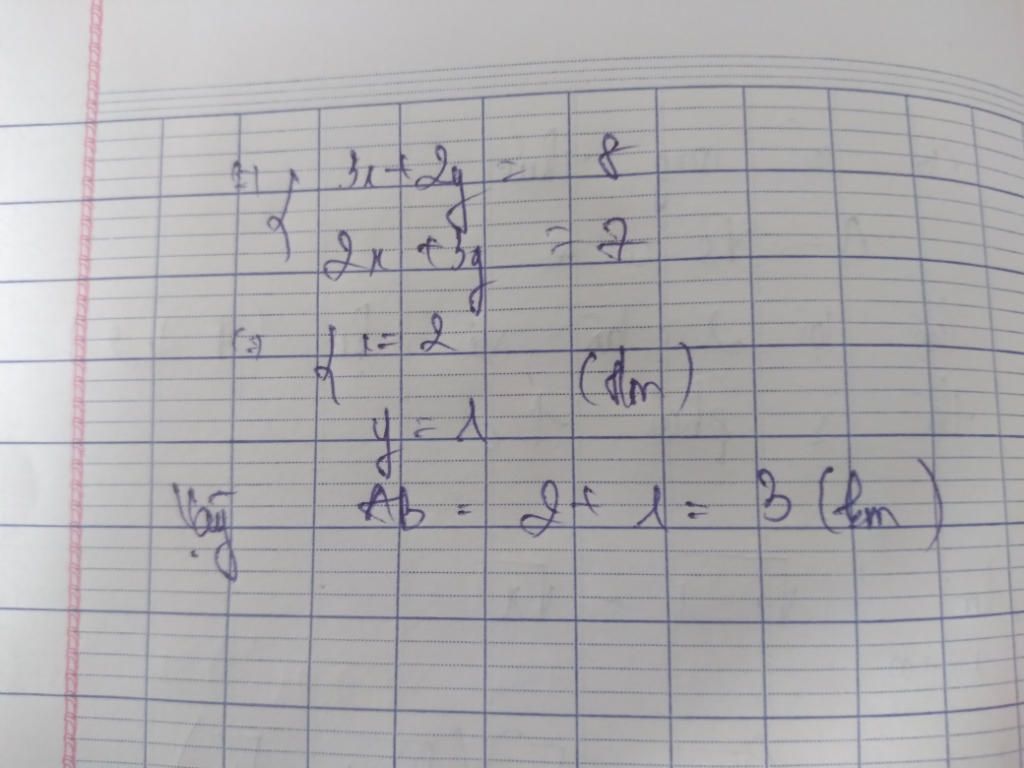 ⇔ { 3x + 2y = 8
2x + 3y = 7
⇔ { x = 2
(km)
y = 1
Vậy AB = 2 + 1 = 3 (km)